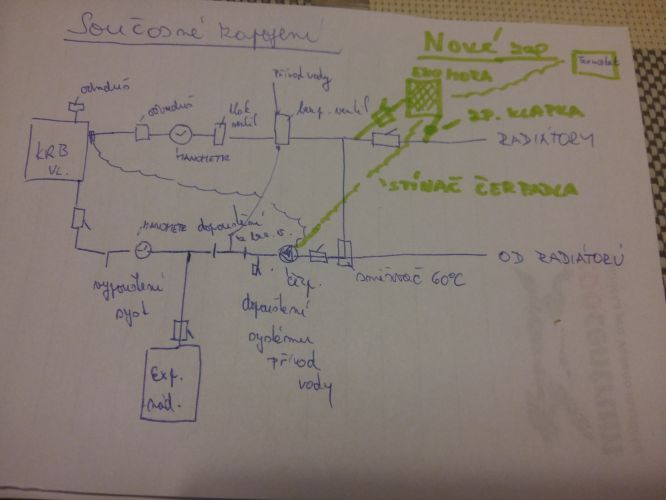 Současné zapojení
Nové zap
Termostat
EKOMORA
ZP. KLAPKA
STÍNAČ ČERPADLA
přívod vody
odvzduš
odvzduš
MANOMETR
bezp. ventil
RADIÁTORY
KRB
VL.
MANOMETR
dopouštění
OD RADIÁTORŮ
směšovač 60°C
čerp.
vypouštění
syst
dopouštění
systému
přívod
vody
Exp.
nád.